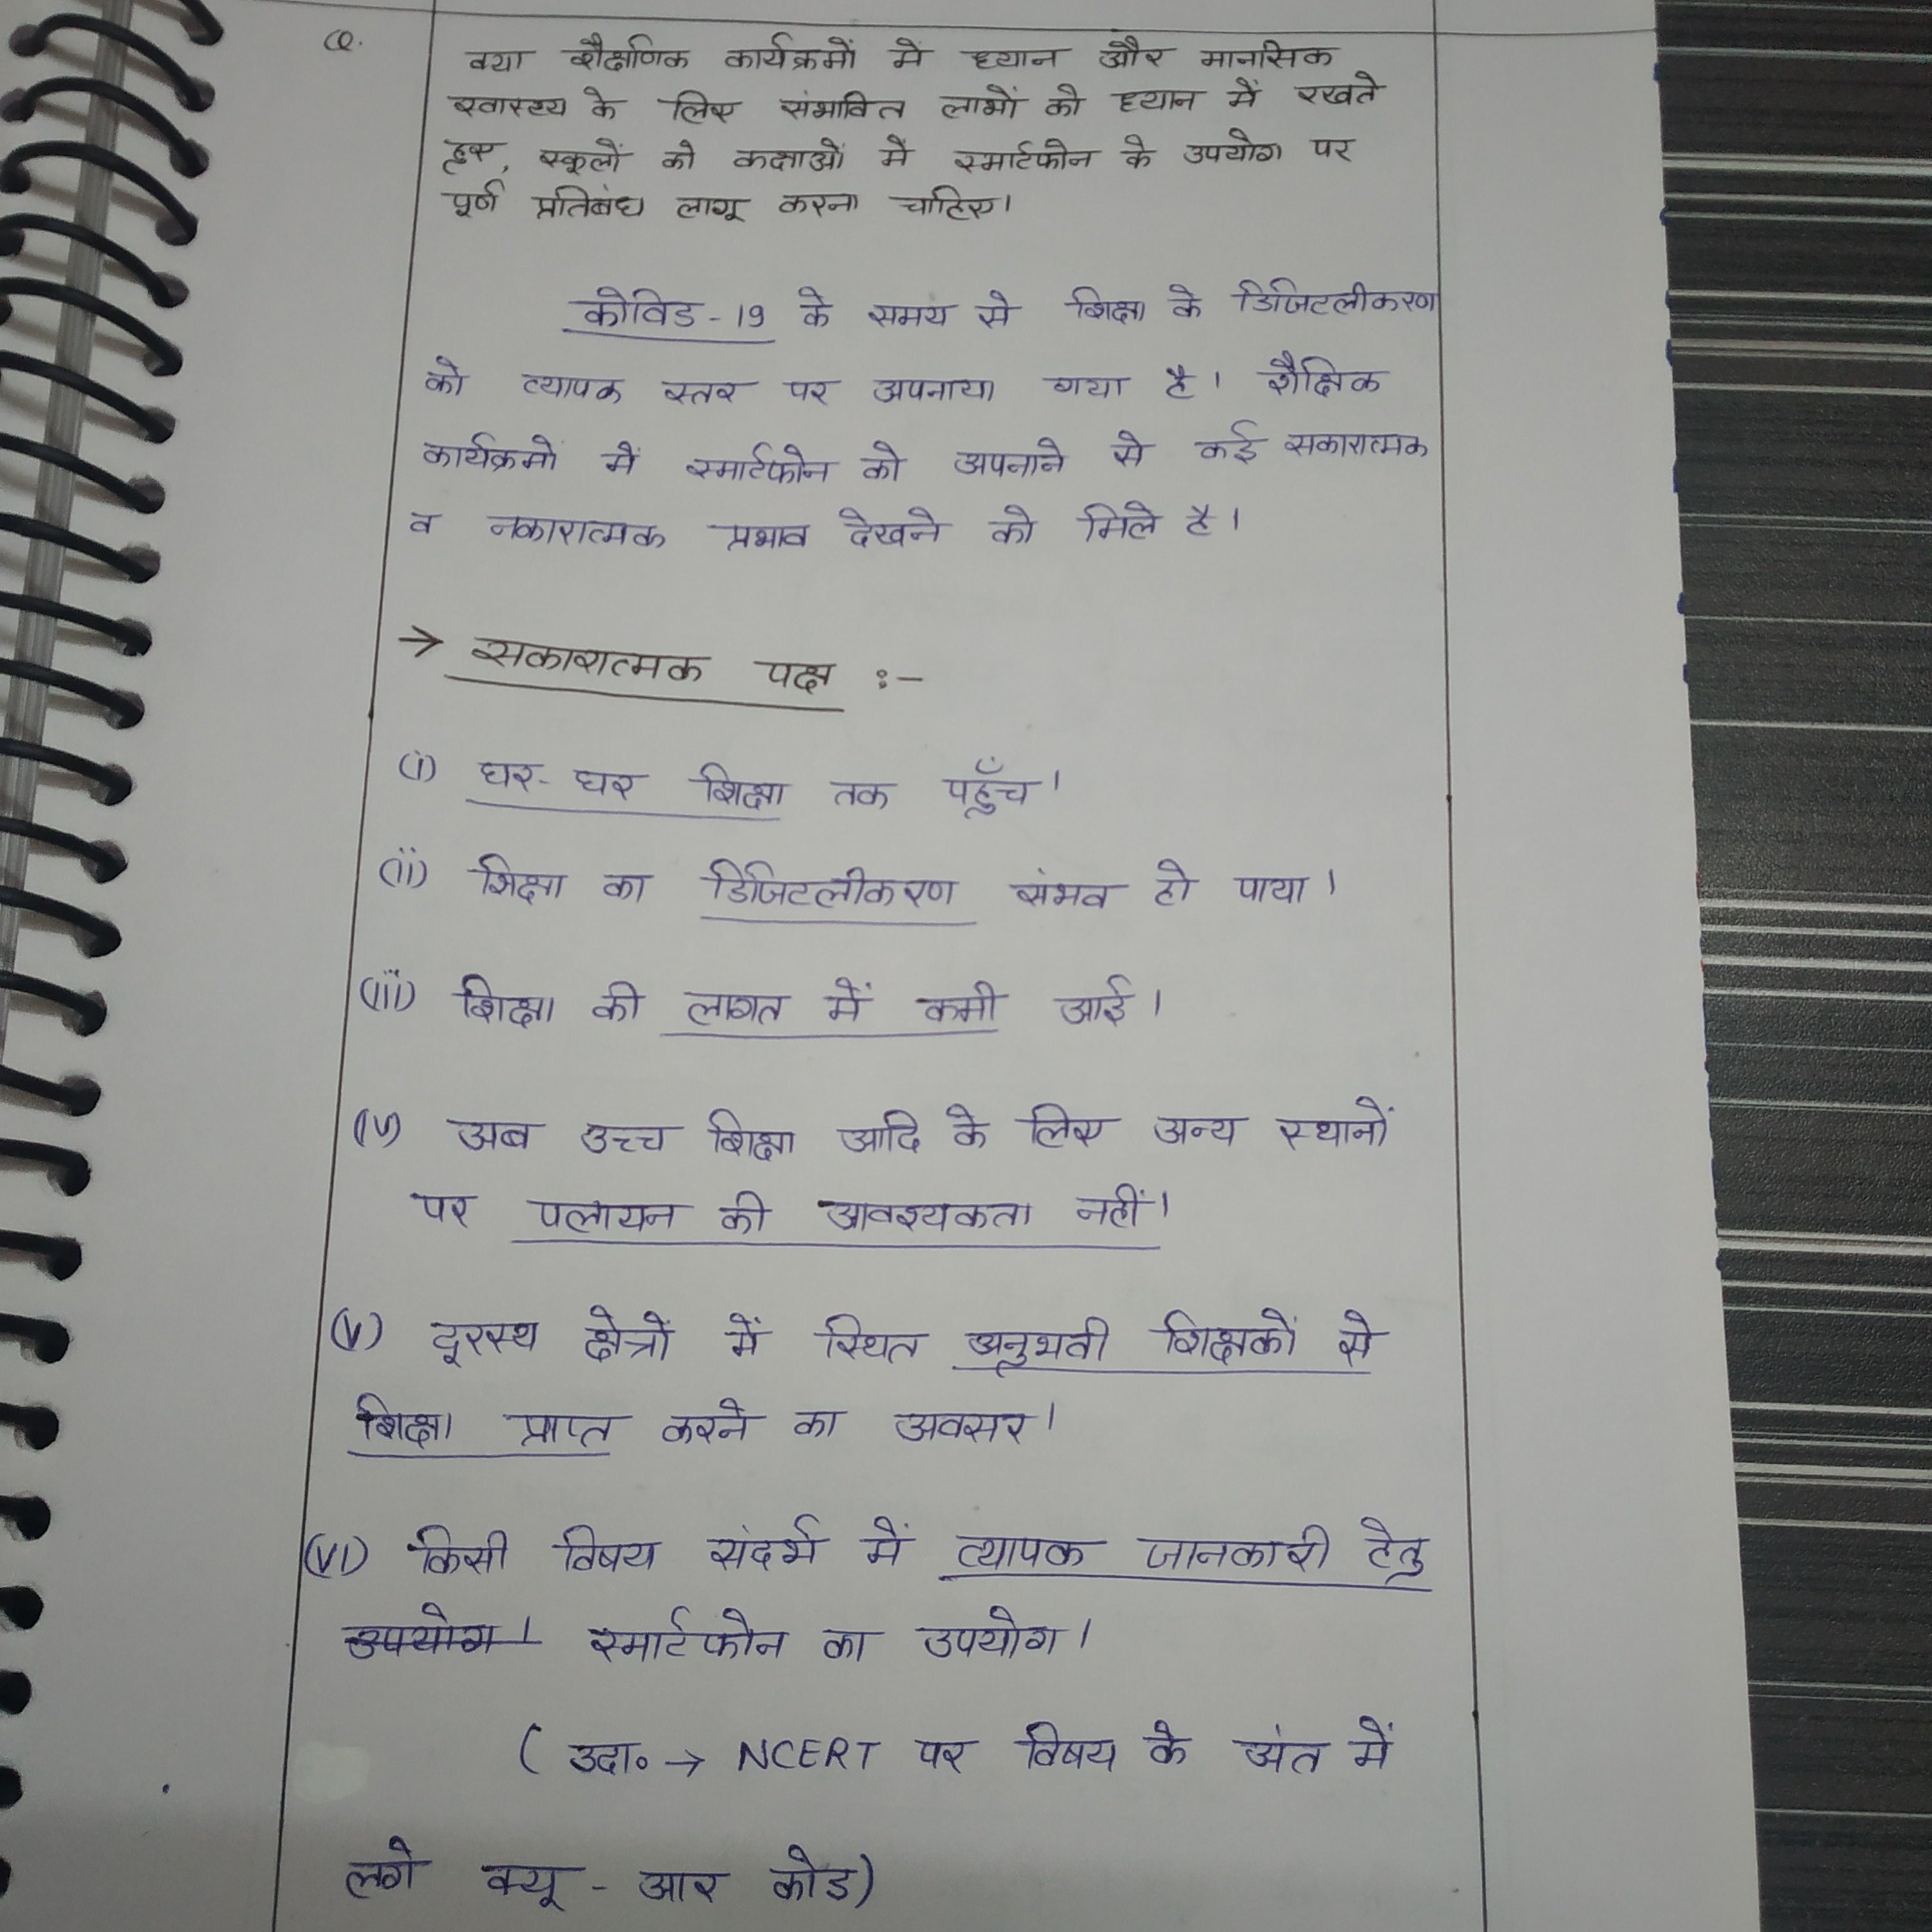 Q.
क्या शैक्षणिक कार्यक्रमों में ध्यान और मानसिक
स्वास्थ्य के लिए संभावित लाभों को ध्यान में रखते
हुए, स्कूलों को कक्षाओं में स्मार्टफोन के उपयोग पर
पूर्ण प्रतिबंध लागू करना चाहिए।
कोविड-19 के समय से शिक्षा के डिजिटलीकरण
को व्यापक स्तर पर अपनाया गया है। शैक्षिक
कार्यक्रमों में स्मार्टफोन को अपनाने से कई सकारात्मक
व नकारात्मक प्रभाव देखने को मिले है।
→ सकारात्मक पक्ष :-
(i) घर-घर शिक्षा तक पहुँच।
(ii) शिक्षा का डिजिटलीकरण संभव हो पाया।
(iii) शिक्षा की लागत में कमी आई।
(iv) अब उच्च शिक्षा आदि के लिए अन्य स्थानों
पर पलायन की आवश्यकता नहीं।
(v) दूरस्थ क्षेत्रों में स्थित अनुभवी शिक्षकों से
शिक्षा प्राप्त करने का अवसर।
(vi) किसी विषय संदर्भ में व्यापक जानकारी हेतु
उपयोग। स्मार्टफोन का उपयोग।
( उदा० → NCERT पर विषय के अंत में
लगे क्यू-आर कोड)